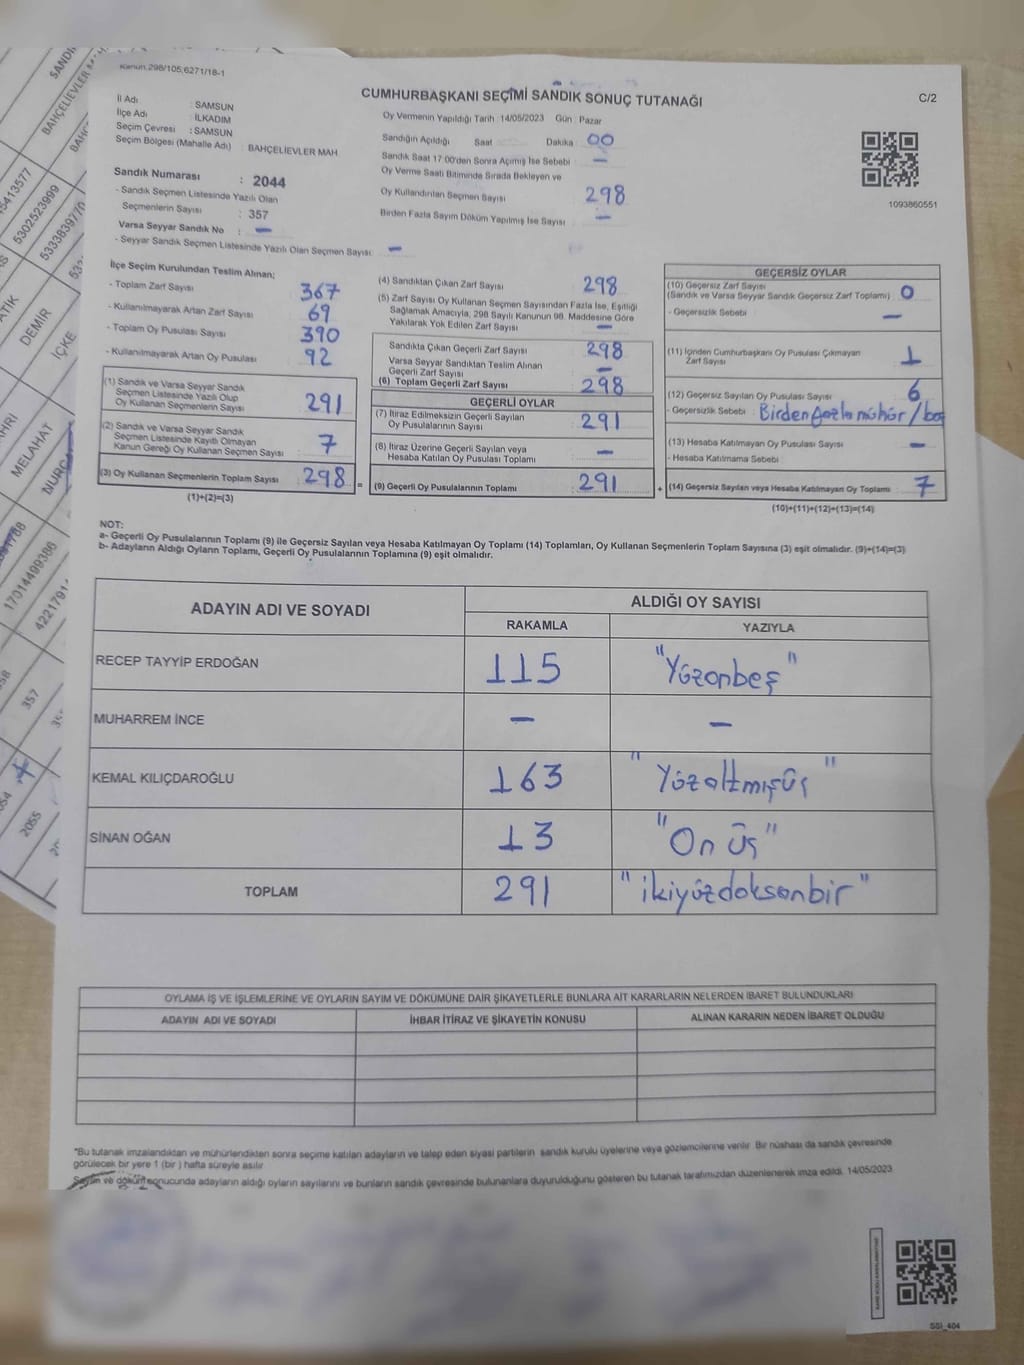 Kanun,298/105,6271/18-1
CUMHURBAŞKANI SEÇİMİ SANDIK SONUÇ TUTANAĞI
C/2
İl Adı : SAMSUN
İlçe Adı : İLKADIM
Seçim Çevresi : SAMSUN
Seçim Bölgesi (Mahalle Adı) : BAHÇELİEVLER MAH
Sandık Numarası : 2044
- Sandık Seçmen Listesinde Yazılı Olan
Seçmenlerin Sayısı : 357
Varsa Seyyar Sandık No : –
- Seyyar Sandık Seçmen Listesinde Yazılı Olan Seçmen Sayısı: –
Oy Vermenin Yapıldığı Tarih : 14/05/2023 Gün : Pazar
Sandığın Açıldığı Saat Dakika 00
Sandık Saat 17:00'den Sonra Açımış İse Sebebi –
Oy Verme Saati Bitiminde Sırada Bekleyen ve
Oy Kullandırılan Seçmen Sayısı 298
Birden Fazla Sayım Döküm Yapılmış İse Sayısı –
1093860551
İlçe Seçim Kurulundan Teslim Alınan;
- Toplam Zarf Sayısı 367
- Kullanılmayarak Artan Zarf Sayısı 69
- Toplam Oy Pusulası Sayısı 390
- Kullanılmayarak Artan Oy Pusulası 92
(1) Sandık ve Varsa Seyyar Sandık
Seçmen Listesinde Yazılı Olup
Oy Kullanan Seçmenlerin Sayısı 291
(2) Sandık ve Varsa Seyyar Sandık
Seçmen Listesinde Kayıtlı Olmayan
Kanun Gereği Oy Kullanan Seçmen Sayısı 7
(3) Oy Kullanan Seçmenlerin Toplam Sayısı 298 =
(1)+(2)=(3)
(4) Sandıktan Çıkan Zarf Sayısı 298
(5) Zarf Sayısı Oy Kullanan Seçmen Sayısından Fazla İse, Eşitliği
Sağlamak Amacıyla, 298 Sayılı Kanunun 98. Maddesine Göre
Yakılarak Yok Edilen Zarf Sayısı –
Sandıkta Çıkan Geçerli Zarf Sayısı 298
Varsa Seyyar Sandıktan Teslim Alınan
Geçerli Zarf Sayısı –
(6) Toplam Geçerli Zarf Sayısı 298
GEÇERLİ OYLAR
(7) İtiraz Edilmeksizin Geçerli Sayılan
Oy Pusulalarının Sayısı 291
(8) İtiraz Üzerine Geçerli Sayılan veya
Hesaba Katılan Oy Pusulası Toplamı –
(9) Geçerli Oy Pusulalarının Toplamı 291 +
GEÇERSİZ OYLAR
(10) Geçersiz Zarf Sayısı
(Sandık ve Varsa Seyyar Sandık Geçersiz Zarf Toplamı) 0
- Geçersizlik Sebebi –
(11) İçinden Cumhurbaşkanı Oy Pusulası Çıkmayan
Zarf Sayısı 1
(12) Geçersiz Sayılan Oy Pusulası Sayısı 6
- Geçersizlik Sebebi Birden fazla mühür / boş
(13) Hesaba Katılmayan Oy Pusulası Sayısı –
- Hesaba Katılmama Sebebi
(14) Geçersiz Sayılan veya Hesaba Katılmayan Oy Toplamı 7
(10)+(11)+(12)+(13)=(14)
NOT:
a- Geçerli Oy Pusulalarının Toplamı (9) ile Geçersiz Sayılan veya Hesaba Katılmayan Oy Toplamı (14) Toplamları, Oy Kullanan Seçmenlerin Toplam Sayısına (3) eşit olmalıdır. (9)+(14)=(3)
b- Adayların Aldığı Oyların Toplamı, Geçerli Oy Pusulalarının Toplamına (9) eşit olmalıdır.
ADAYIN ADI VE SOYADI
ALDIĞI OY SAYISI
RAKAMLA YAZIYLA
RECEP TAYYİP ERDOĞAN 115 "Yüzonbeş"
MUHARREM İNCE – –
KEMAL KILIÇDAROĞLU 163 "Yüzaltmışüç"
SİNAN OĞAN 13 "On üç"
TOPLAM 291 "ikiyüzdoksanbir"
OYLAMA İŞ VE İŞLEMLERİNE VE OYLARIN SAYIM VE DÖKÜMÜNE DAİR ŞİKAYETLERLE BUNLARA AİT KARARLARIN NELERDEN İBARET BULUNDUKLARI
ADAYIN ADI VE SOYADI İHBAR İTİRAZ VE ŞİKAYETİN KONUSU ALINAN KARARIN NEDEN İBARET OLDUĞU
*Bu tutanak imzalandıktan ve mühürlendikten sonra seçime katılan adayların ve talep eden siyasi partilerin sandık kurulu üyelerine veya gözlemcilerine verilir. Bir nüshası da sandık çevresinde
görülecek bir yere 1 (bir ) hafta süreyle asılır
Sayım ve döküm sonucunda adayların aldığı oyların sayılarını ve bunların sandık çevresinde bulunanlara duyurulduğunu gösteren bu tutanak tarafımızdan düzenlenerek imza edildi. 14/05/2023
SSI_404
SANDI
BAHÇELİEVLER
5302523999
5333839770
DEMİR
İÇKE
MELAHAT
17014499386
357
2055